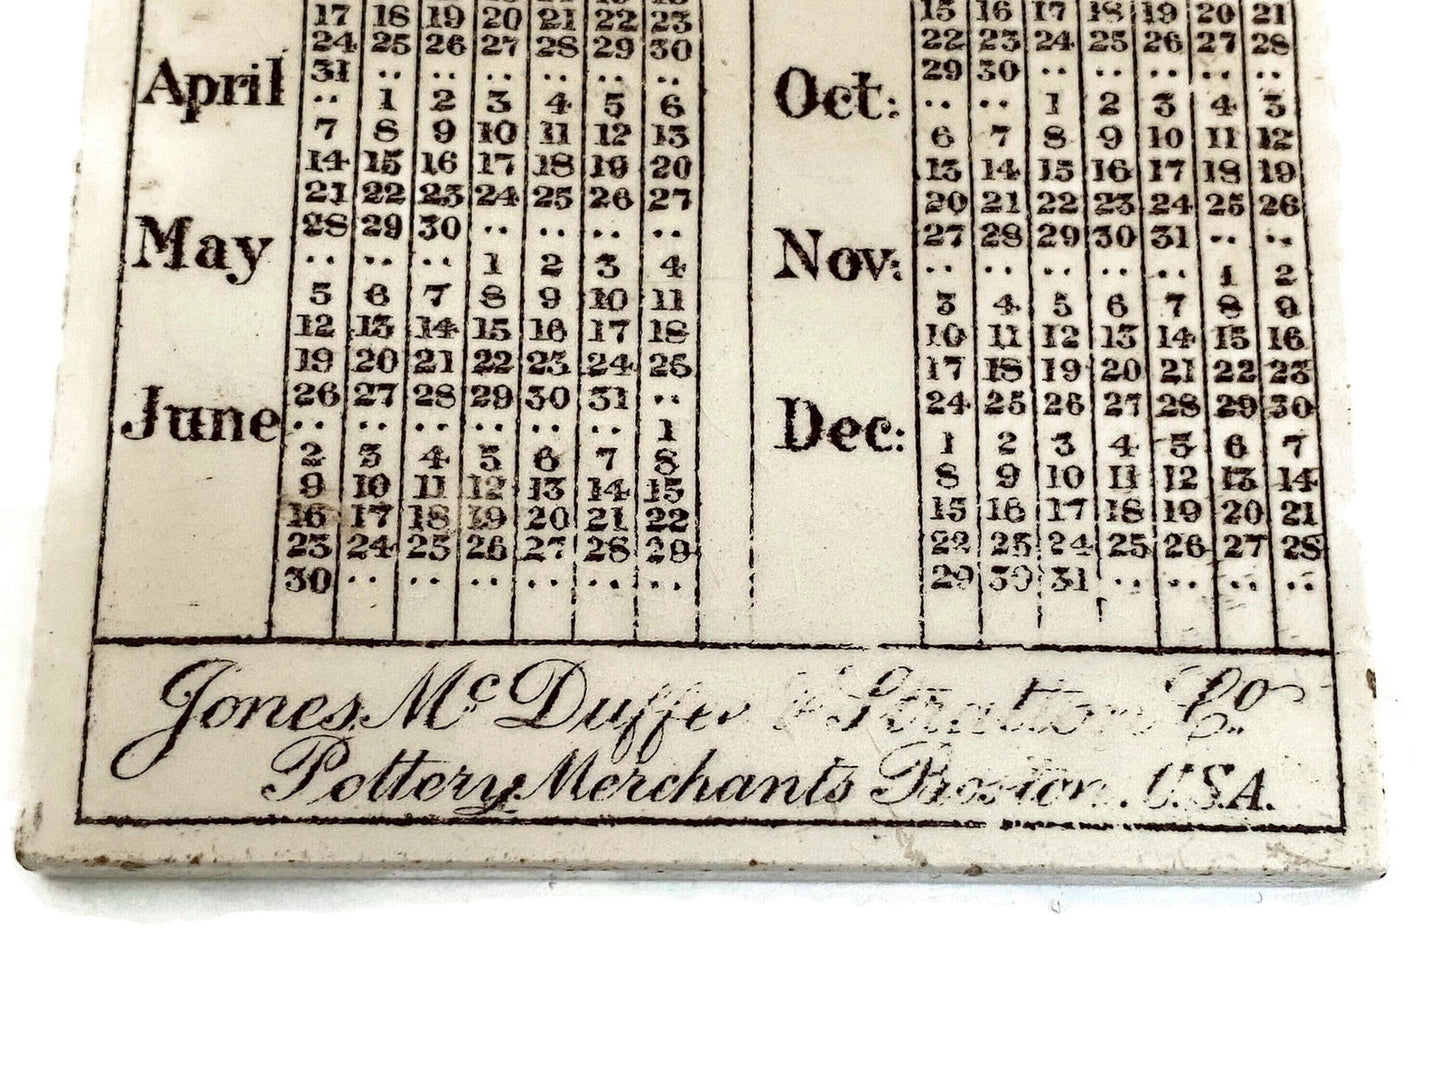 17 18 19 20 21 22 23
24 25 26 27 28 29 30
31 .. .. .. .. .. ..
April .. 1 2 3 4 5 6
7 8 9 10 11 12 13
14 15 16 17 18 19 20
21 22 23 24 25 26 27
28 29 30 .. .. .. ..
May .. .. .. 1 2 3 4
5 6 7 8 9 10 11
12 13 14 15 16 17 18
19 20 21 22 23 24 25
26 27 28 29 30 31 ..
June .. .. .. .. .. .. 1
2 3 4 5 6 7 8
9 10 11 12 13 14 15
16 17 18 19 20 21 22
23 24 25 26 27 28 29
30 .. .. .. .. .. ..
15 16 17 18 19 20 21
22 23 24 25 26 27 28
29 30 .. .. .. .. ..
Oct: .. .. 1 2 3 4 5
6 7 8 9 10 11 12
13 14 15 16 17 18 19
20 21 22 23 24 25 26
27 28 29 30 31 .. ..
Nov: .. .. .. .. .. 1 2
3 4 5 6 7 8 9
10 11 12 13 14 15 16
17 18 19 20 21 22 23
24 25 26 27 28 29 30
Dec: 1 2 3 4 5 6 7
8 9 10 11 12 13 14
15 16 17 18 19 20 21
22 23 24 25 26 27 28
29 30 31 .. .. .. ..
Jones, McDuffee & Stratton Co.
Pottery Merchants Boston. U.S.A.